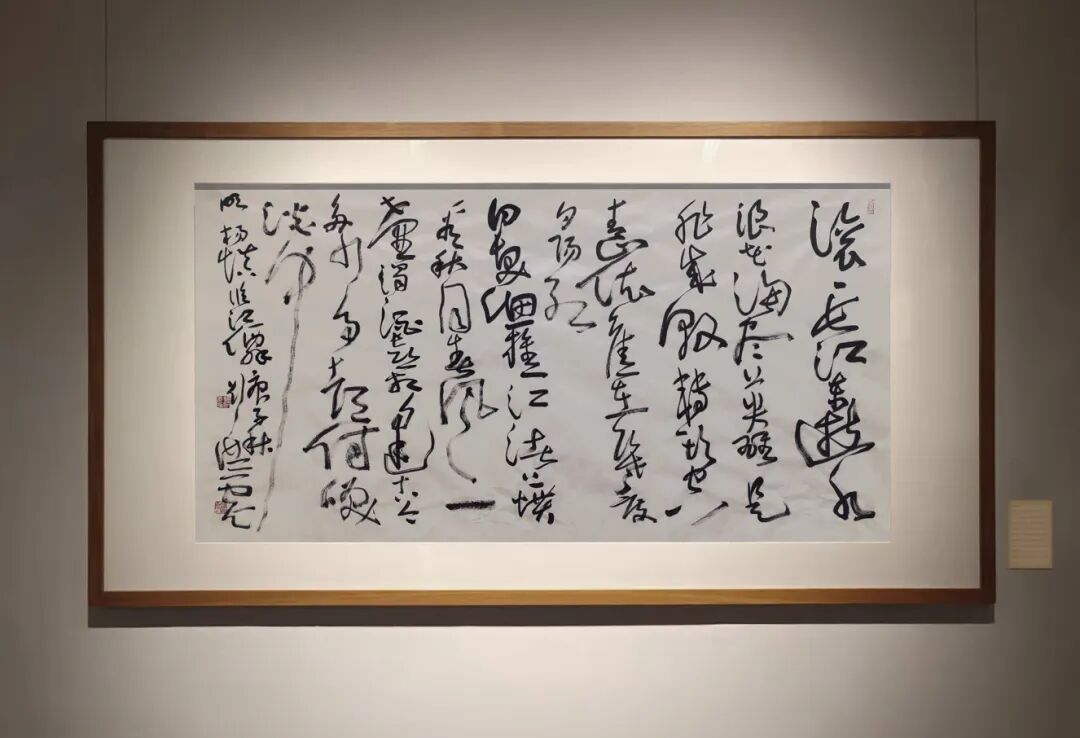 滚滚长江东逝水
浪花淘尽英雄是
非成败转头空
青山依旧在几度
夕阳红
白发渔樵江渚上惯
看秋月春风一
壶浊酒喜相逢古今
多少事都付笑
谈中
明杨慎临江仙庚子秋
刘